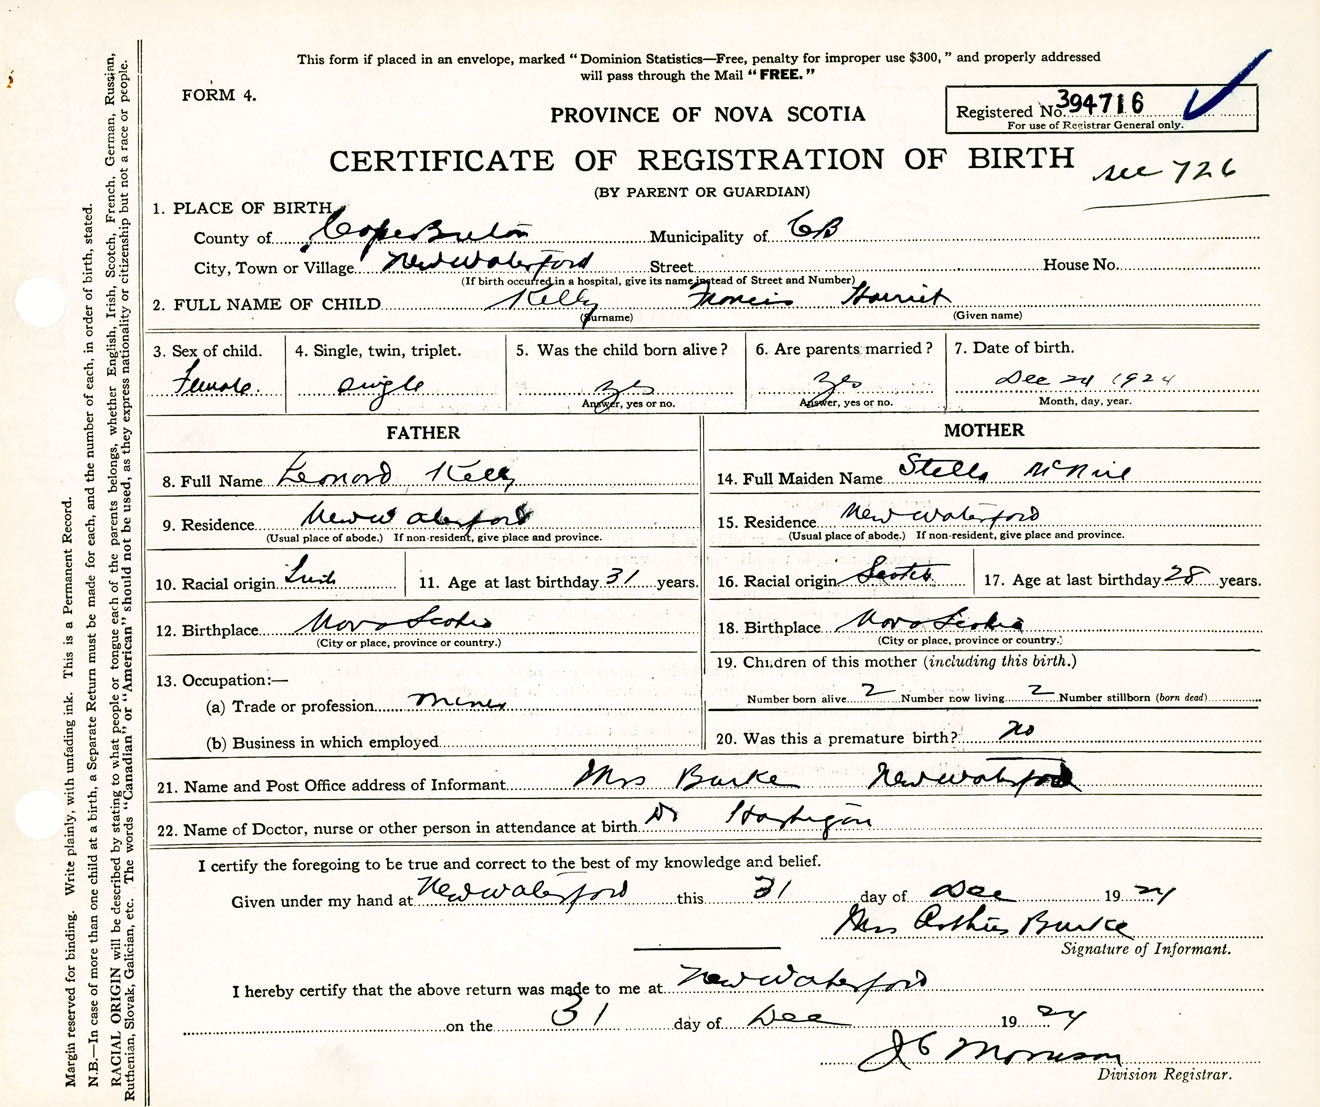 This form if placed in an envelope, marked "Dominion Statistics—Free, penalty for improper use $300," and properly addressed
will pass through the Mail "FREE."
FORM 4.
PROVINCE OF NOVA SCOTIA
Registered No. 394716
For use of Registrar General only.
CERTIFICATE OF REGISTRATION OF BIRTH
see 726
(BY PARENT OR GUARDIAN)
1. PLACE OF BIRTH
County of Cape Breton Municipality of CB
City, Town or Village New Waterford Street House No.
(If birth occurred in a hospital, give its name instead of Street and Number)
2. FULL NAME OF CHILD Kelly Francis Harriet
(Surname) (Given name)
3. Sex of child. 4. Single, twin, triplet. 5. Was the child born alive? 6. Are parents married? 7. Date of birth.
Female. single yes yes Dec 24 1924
Answer, yes or no. Answer, yes or no. Month, day, year.
FATHER MOTHER
8. Full Name Leonard Kelly 14. Full Maiden Name Stella McNeil
9. Residence New Waterford 15. Residence New Waterford
(Usual place of abode.) If non-resident, give place and province. (Usual place of abode.) If non-resident, give place and province.
10. Racial origin 11. Age at last birthday 31 years. 16. Racial origin Scotch 17. Age at last birthday 28 years.
12. Birthplace Nova Scotia 18. Birthplace Nova Scotia
(City or place, province or country.) (City or place, province or country.)
19. Children of this mother (including this birth.)
13. Occupation:—
(a) Trade or profession Miner Number born alive 2 Number now living 2 Number stillborn (born dead)
(b) Business in which employed 20. Was this a premature birth? no
21. Name and Post Office address of Informant Mrs Burke New Waterford
22. Name of Doctor, nurse or other person in attendance at birth Dr Hartigan
I certify the foregoing to be true and correct to the best of my knowledge and belief.
Given under my hand at New Waterford this 31 day of Dec 1924
Mrs Arthur Burke
Signature of Informant.
I hereby certify that the above return was made to me at New Waterford
on the 31 day of Dec 1924
J C Morrison
Division Registrar.
Margin reserved for binding. Write plainly, with unfading ink. This is a Permanent Record.
N.B.—In case of more than one child at a birth, a Separate Return must be made for each, and the number of each, in order of birth, stated.
RACIAL ORIGIN will be described by stating to what people or tongue each of the parents belongs, whether English, Irish, Scotch, French, German, Russian,
Ruthenian, Slovak, Galician, etc. The words "Canadian" or "American" should not be used, as they express nationality or citizenship but not a race or people.